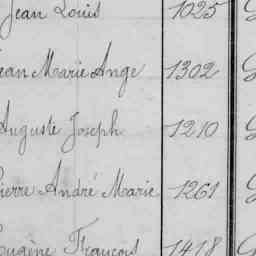 Jean Louis 1025
Jean Marie Ange 1302
Auguste Joseph 1210
Pierre André Marie 1261
Eugène François 1418